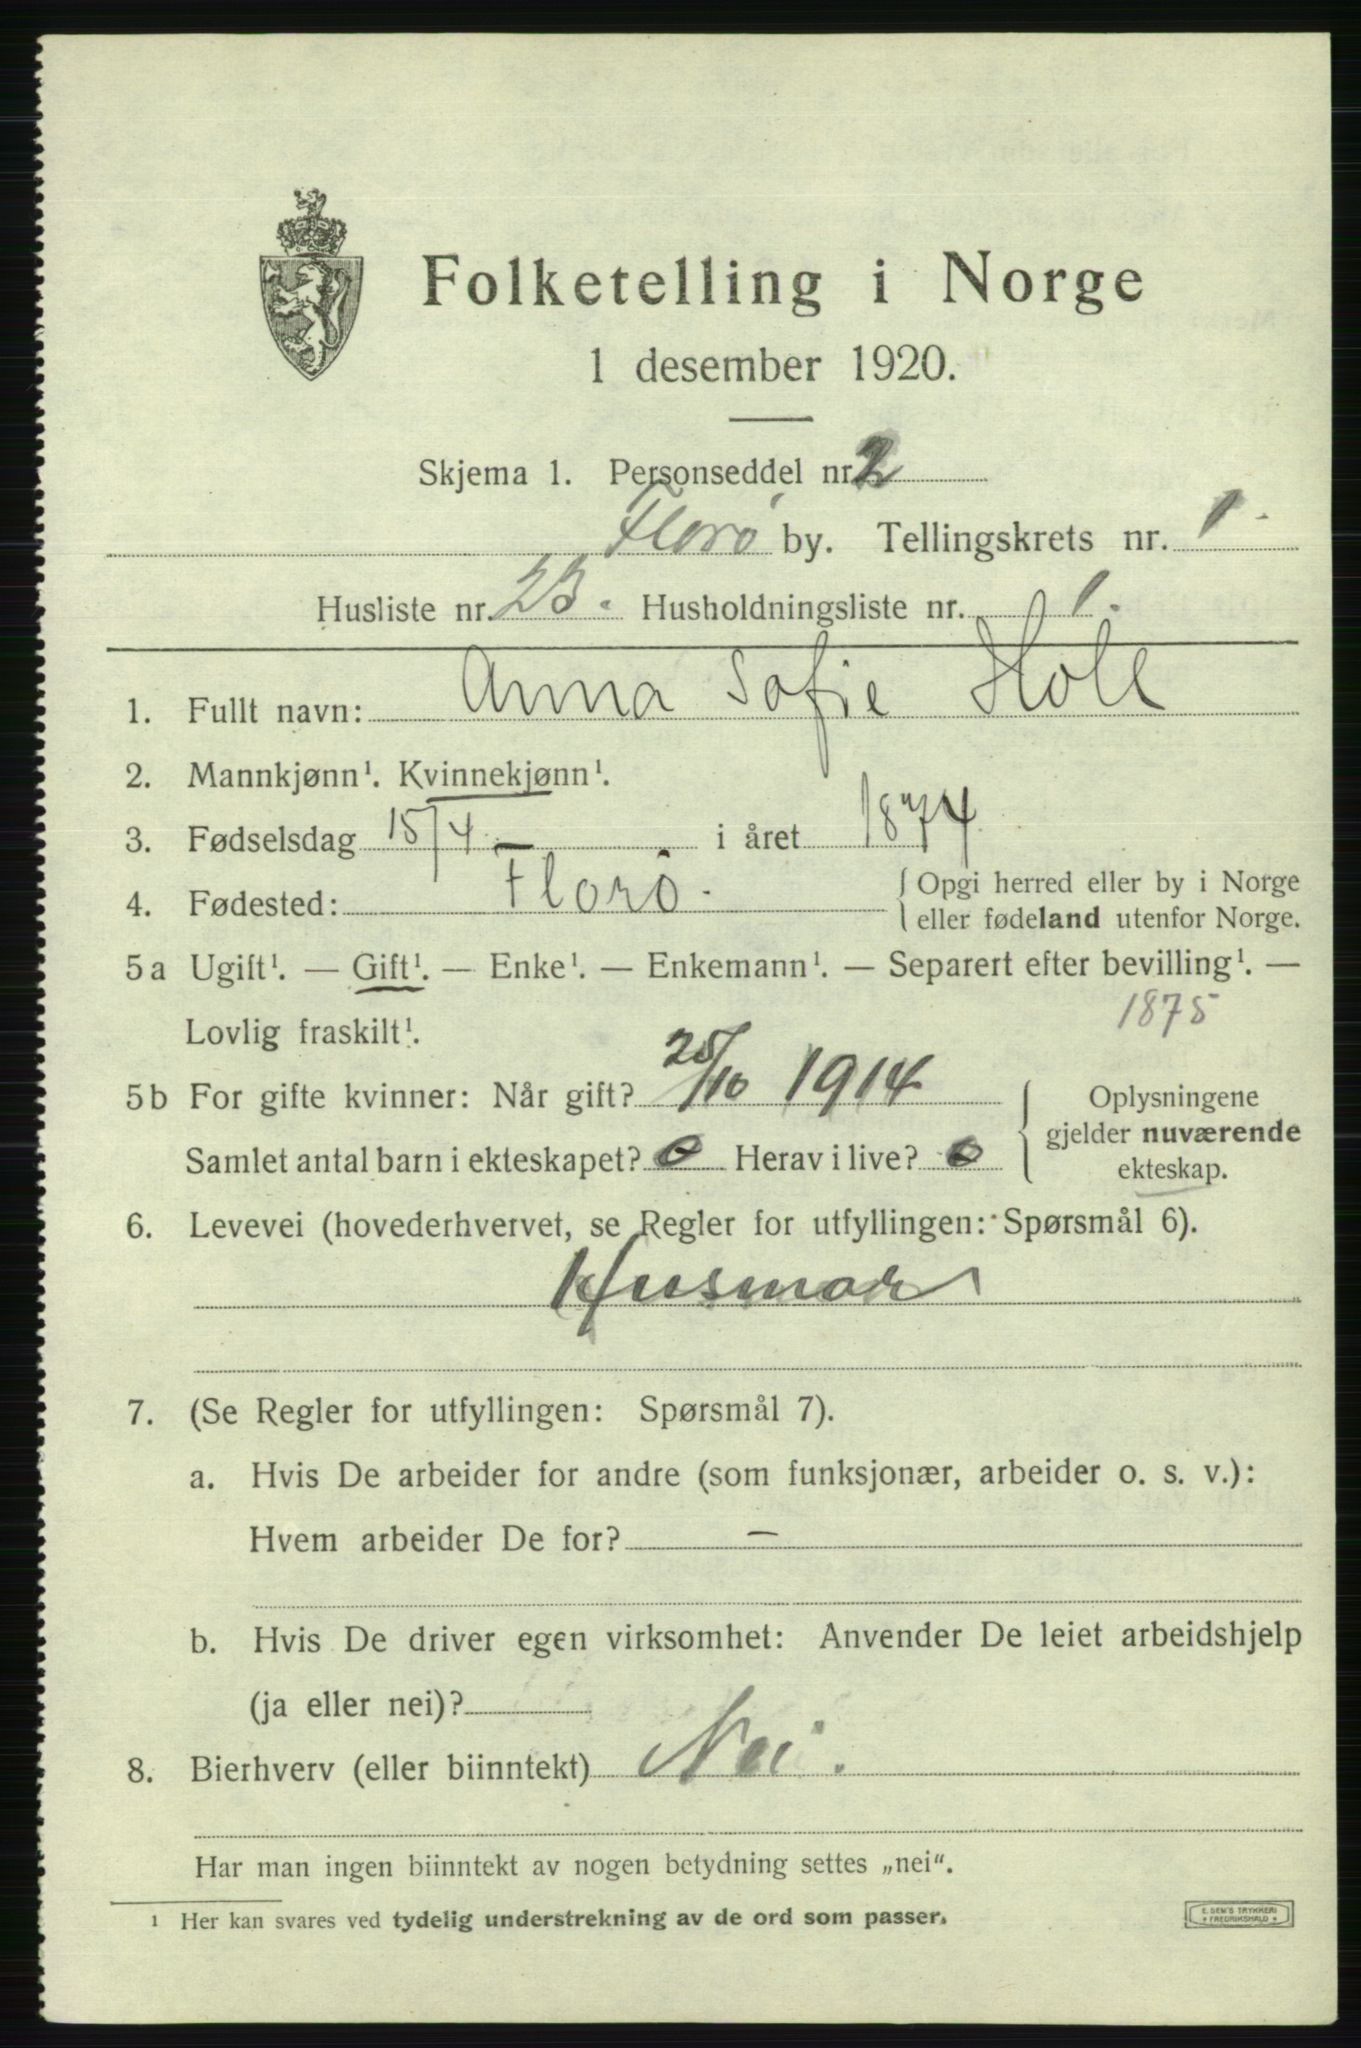 Folketelling i Norge
1 desember 1920.
Skjema 1. Personseddel nr. 2
Florø by. Tellingskrets nr. 1.
Husliste nr. 23. Husholdningsliste nr. 1.
1. Fullt navn: Anna Sofie Holl
2. Mannkjønn¹. Kvinnekjønn¹.
3. Fødselsdag 15/4 i året 1874
4. Fødested: Florø. { Opgi herred eller by i Norge
eller fødeland utenfor Norge.
5a Ugift¹. — Gift¹. — Enke¹. — Enkemann¹. — Separert efter bevilling¹. —
Lovlig fraskilt¹. 1875
5b For gifte kvinner: Når gift? 25/10 1914 { Oplysningene
gjelder nuværende
ekteskap.
Samlet antal barn i ekteskapet? 0 Herav i live? 0
6. Levevei (hovederhvervet, se Regler for utfyllingen: Spørsmål 6).
Husmor
7. (Se Regler for utfyllingen: Spørsmål 7).
a. Hvis De arbeider for andre (som funksjonær, arbeider o. s. v.):
Hvem arbeider De for? —
b. Hvis De driver egen virksomhet: Anvender De leiet arbeidshjelp
(ja eller nei)?
8. Bierhverv (eller biinntekt) Nei.
Har man ingen biinntekt av nogen betydning settes „nei“.
¹ Her kan svares ved tydelig understrekning av de ord som passer.
E. SEM'S TRYKKERI
* FREDRIKSHALD *